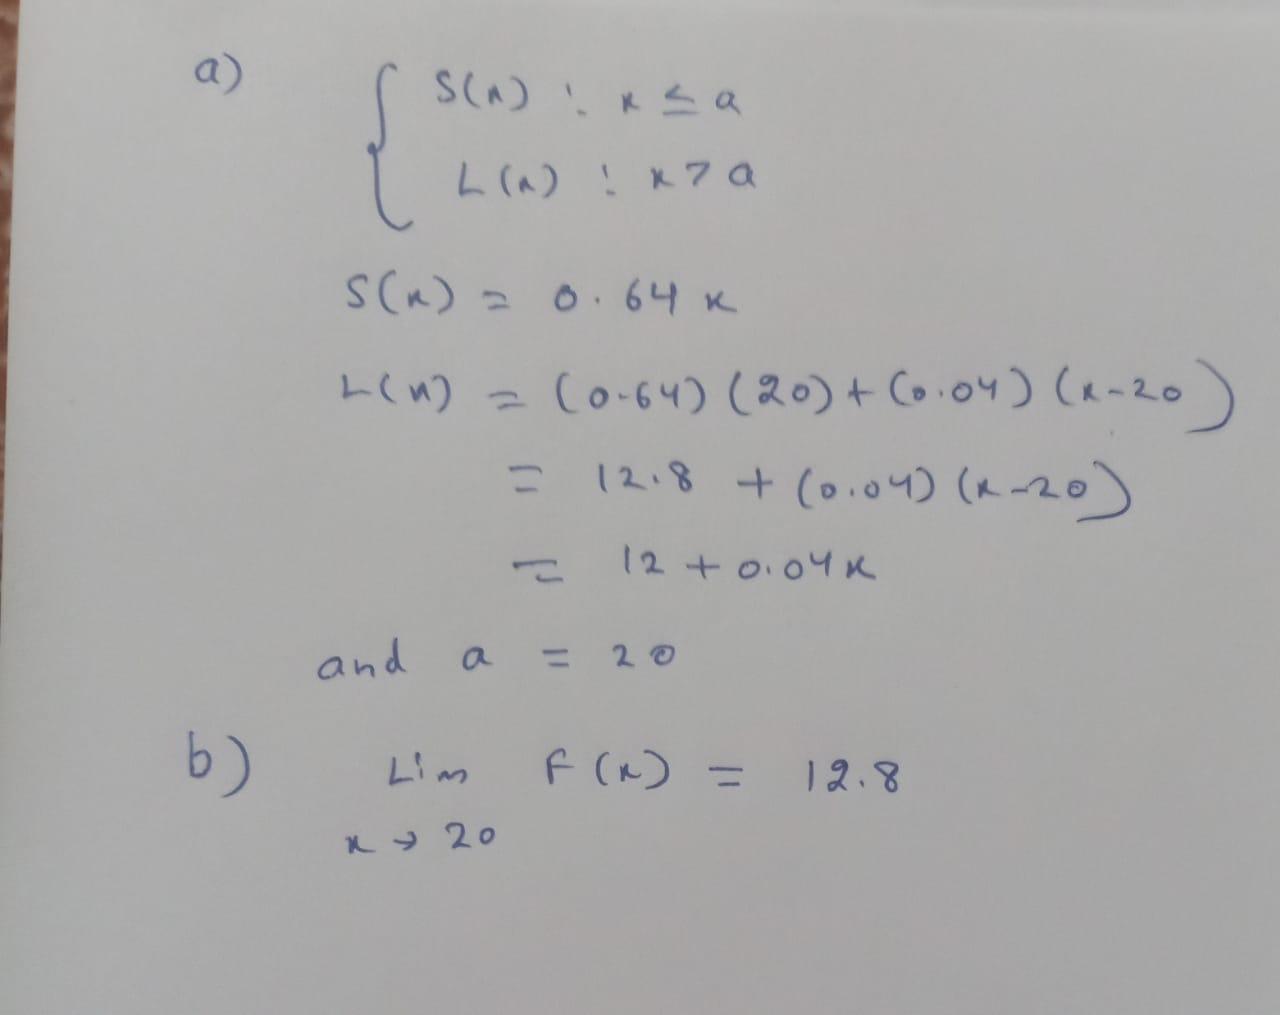 a)
S(x) : x ≤ a
L(x) : x > a
S(x) = 0.64 x
L(x) = (0.64) (20) + (0.04) (x-20)
= 12.8 + (0.04) (x-20)
= 12 + 0.04x
and a = 20
b) Lim F(x) = 12.8
x → 20